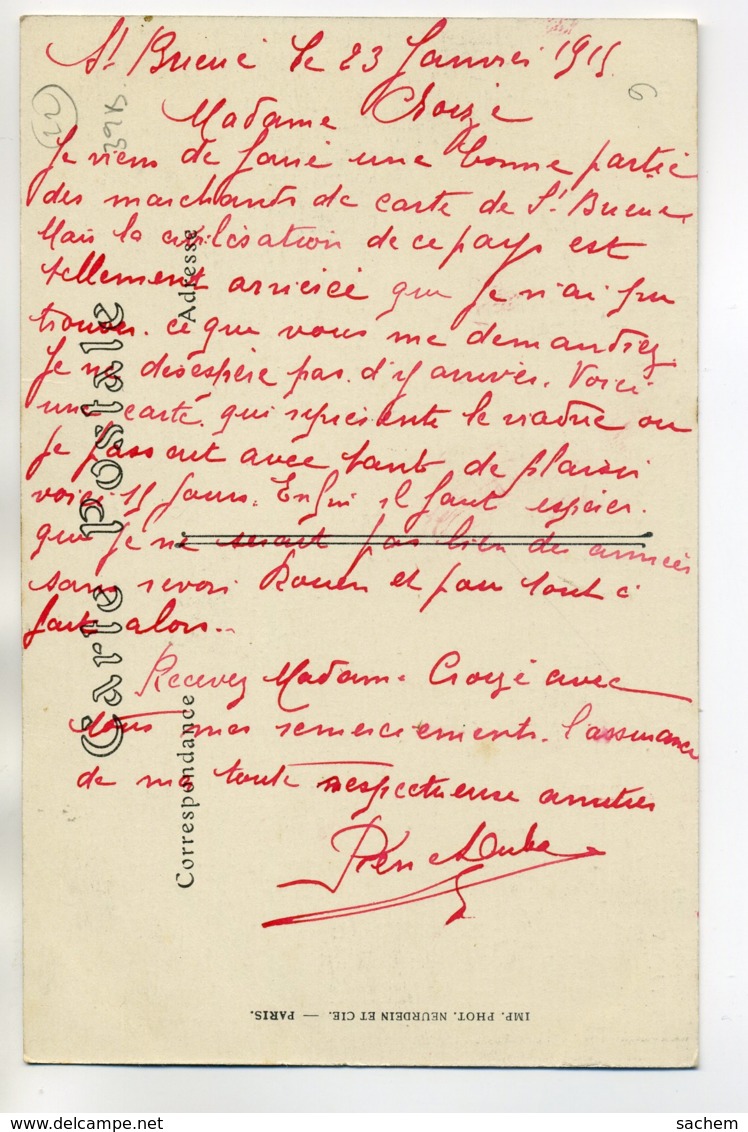 St Brieuc le 23 Janvier 1915
Madame Croizé
Je viens de faire une bonne partie
des marchands de carte de St Brieuc
Mais la civilisation de ce pays est
tellement arrieréé que je n'ai pu
trouver ce que vous me demandiez.
Je ne désespère pas d'y arriver. Voici
une carte qui représente le viaduc ou
je passait avec tant de plaisir
voici 15 jours. Enfin il faut espérer
que je ne serait pas bien des années
sans revoir Rouen et pour tout à
fait alors..
Recevez Madame Croizé avec
tous mes remerciements. l'assurance
de ma toute respectueuse amitiés
Carte postale
Adresse
Correspondance
IMP. PHOT. NEURDEIN ET CIE. — PARIS.
22
398
6
sachem